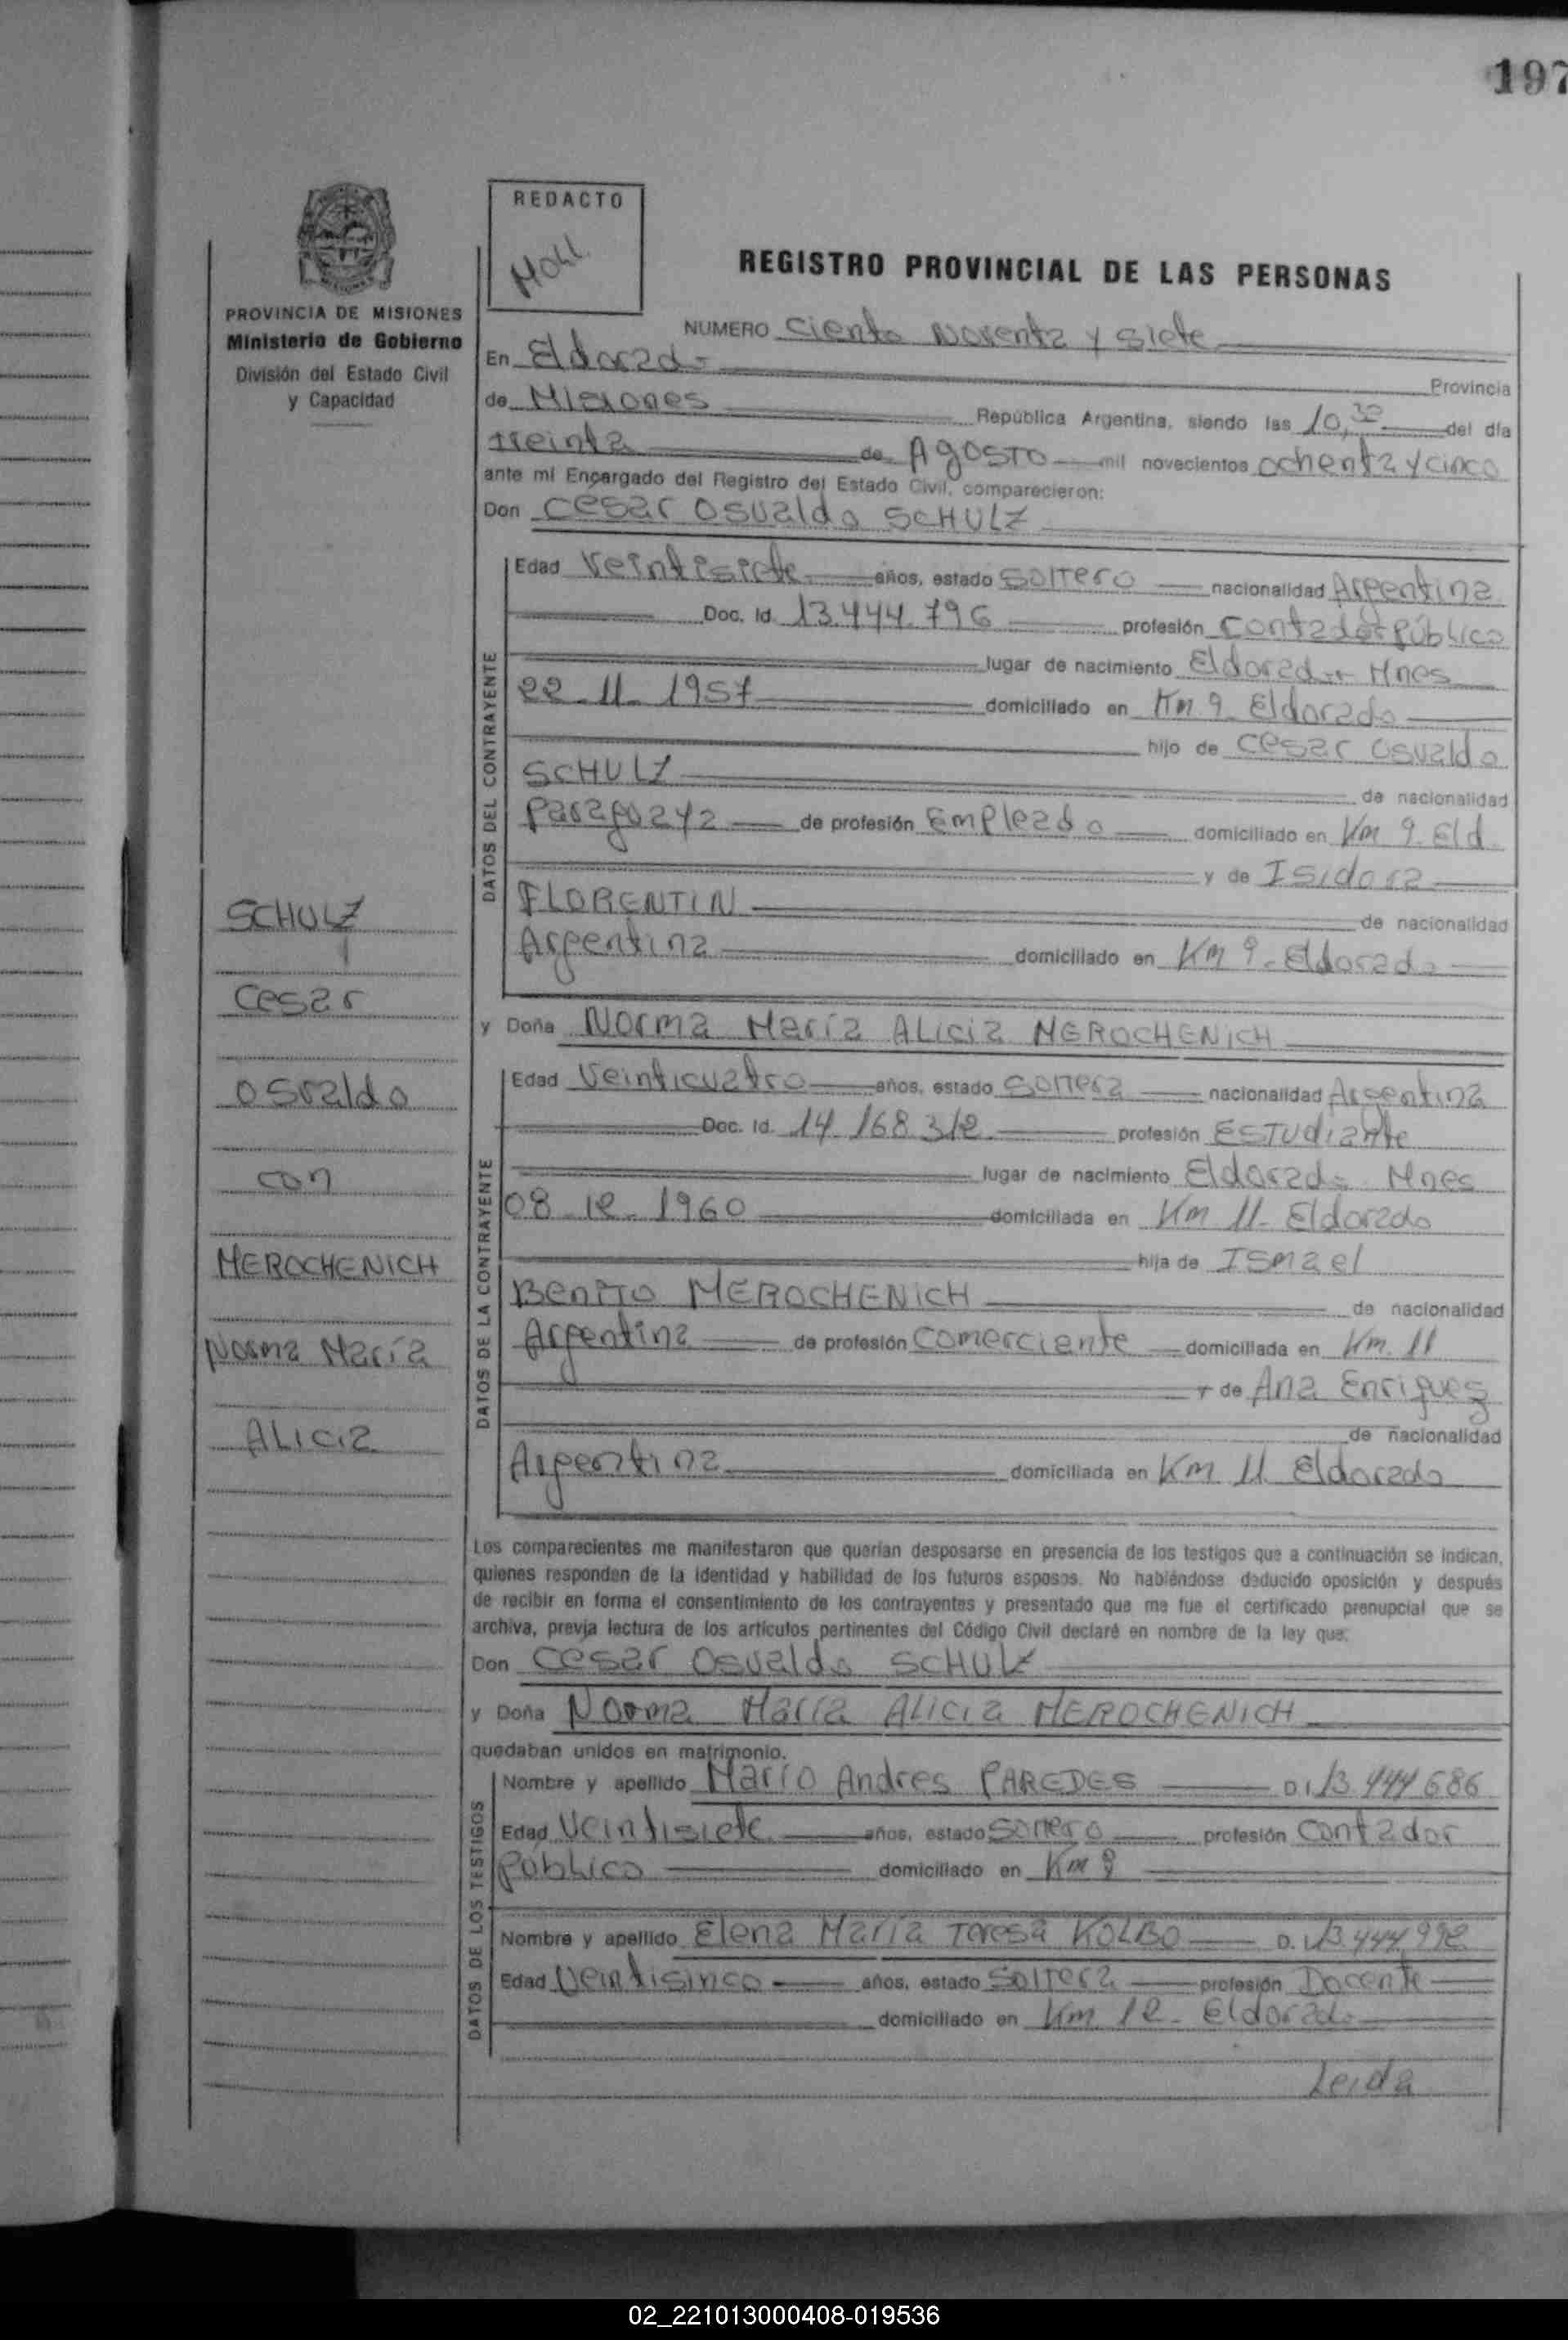 197
REDACTO
Mohl.
PROVINCIA DE MISIONES
Ministerio de Gobierno
División del Estado Civil
y Capacidad
REGISTRO PROVINCIAL DE LAS PERSONAS
NUMERO Ciento Noventa y Siete
En Eldorado Provincia
de Misiones República Argentina, siendo las 10,30 del día
treinta de Agosto mil novecientos ochenta y cinco
ante mi Encargado del Registro del Estado Civil, comparecieron:
Don Cesar Osvaldo SCHULZ
DATOS DEL CONTRAYENTE
Edad Veintisiete años, estado Soltero nacionalidad Argentina
Doc. Id. 13.444.796 profesión Contador Público
lugar de nacimiento Eldorado Mnes
22-11-1957 domiciliado en Km 9 Eldorado
hijo de Cesar Osvaldo
SCHULZ de nacionalidad
Paraguaya de profesión Empleado domiciliado en Km 9. Eld.
y de Isidora
FLORENTIN de nacionalidad
Argentina domiciliado en Km 9- Eldorado
y Doña Norma María Alicia MEROCHENICH
DATOS DE LA CONTRAYENTE
Edad Veinticuatro años, estado Soltera nacionalidad Argentina
Doc. Id. 14.168.312 profesión Estudiante
lugar de nacimiento Eldorado Mnes
08-12-1960 domiciliada en Km 11- Eldorado
hija de Ismael
Benito MEROCHENICH de nacionalidad
Argentina de profesión Comerciante domiciliada en Km. 11
y de Ana Enriquez
de nacionalidad
Argentina domiciliada en Km 11 Eldorado
SCHULZ
Cesar
Osvaldo
con
MEROCHENICH
Norma María
Alicia
Los comparecientes me manifestaron que querían desposarse en presencia de los testigos que a continuación se indican,
quienes responden de la identidad y habilidad de los futuros esposos. No habiéndose deducido oposición y después
de recibir en forma el consentimiento de los contrayentes y presentado que me fue el certificado prenupcial que se
archiva, previa lectura de los artículos pertinentes del Código Civil declaré en nombre de la ley que:
Don Cesar Osvaldo SCHULZ
y Doña Norma María Alicia MEROCHENICH
quedaban unidos en matrimonio.
DATOS DE LOS TESTIGOS
Nombre y apellido Mario Andres PAREDES D.I. 13.444.686
Edad Veintisiete años, estado Soltero profesión Contador
Público domiciliado en Km 9
Nombre y apellido Elena María Teresa KOLBO D.I. 13.444.992
Edad Veintisinco años, estado Soltera profesión Docente
domiciliado en Km 12- Eldorado
Leida
02_221013000408-019536